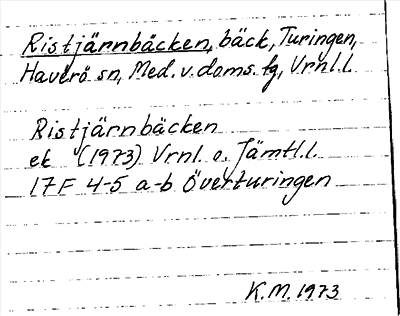 Ristjärnbäcken, bäck, Turingen,
Haverö sn, Med. v. doms. fg, Vrnl. l.
Ristjärnbäcken
ek (1973) Vrnl. o. Jämtl. l.
17 F 4-5 a-b Överturingen
K.M. 1973